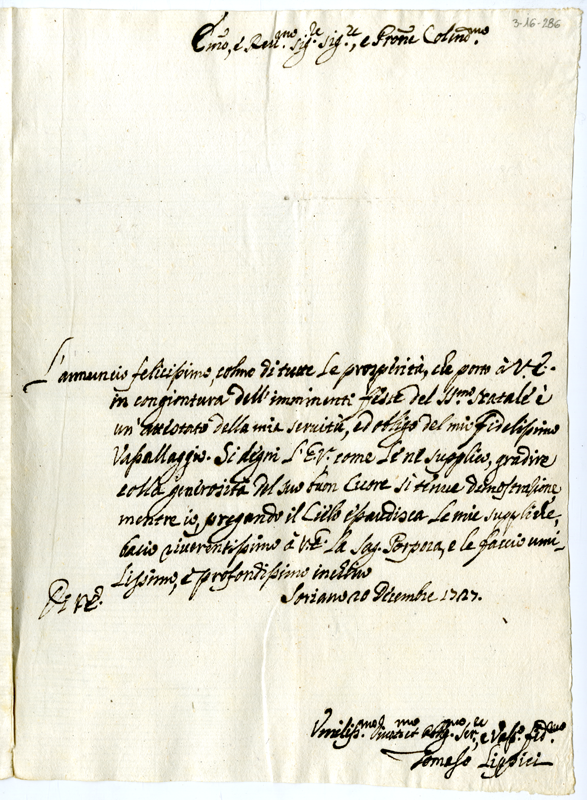 3-16-286
Em̃o, e Reu.mo Sig.re Sig.re, e Prone Colmõ.mo
L'annuncio felicissimo, colmo di tutte le prosperità, che porto à V.E.
in congiontura dell'imminenti feste del SS.mo Natale è
un'attestato della mia seruitù, ed obligo del mio Fidelissimo
Vassallaggio. Si degni L'E.V. come Le ne supplico, gradire
colla generosità del suo buon Cuore si tenue demostrasione,
mentre io, pregando il Cielo essaudisca le mie suppliche,
bacio riuerentissimo à V.E. la Sag. Porpora, e le faccio umi-
lissimo, e profondissimo inchino
Di V.E. Soriano 20 Decembre 1727.
Umiliss.mo Diuot.mo et Oblig.mo Ser.re, e Vass.o fid.mo
Tomaso